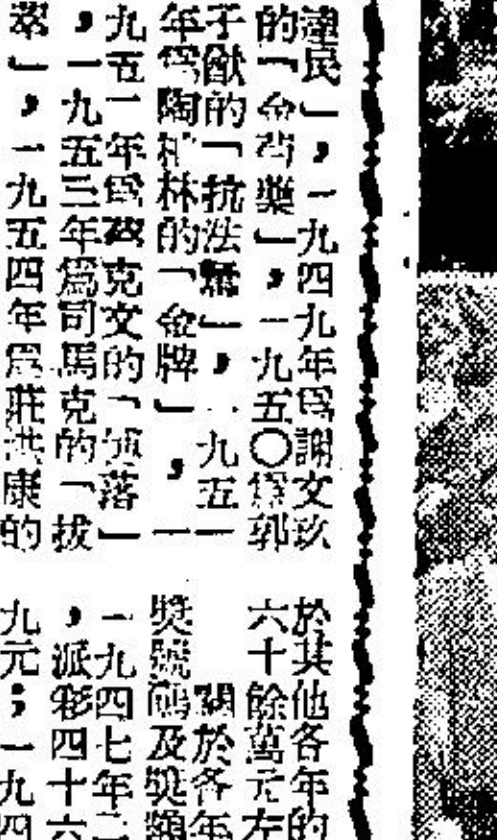 民」，一九四九年爲謝文玖
的「金獎」，一九五〇爲郭
子猷的「抗法」，一九五一
年爲陶林的「金牌」，一
九五一年爲克文的「落」
，一九五三年爲司馬克的「拔
翠」，一九五四年爲莊洪康的
於其他各年的
六十餘萬元左
關於各年
獎號碼及獎額
一九四七年二
，派彩四十六
九元；一九四